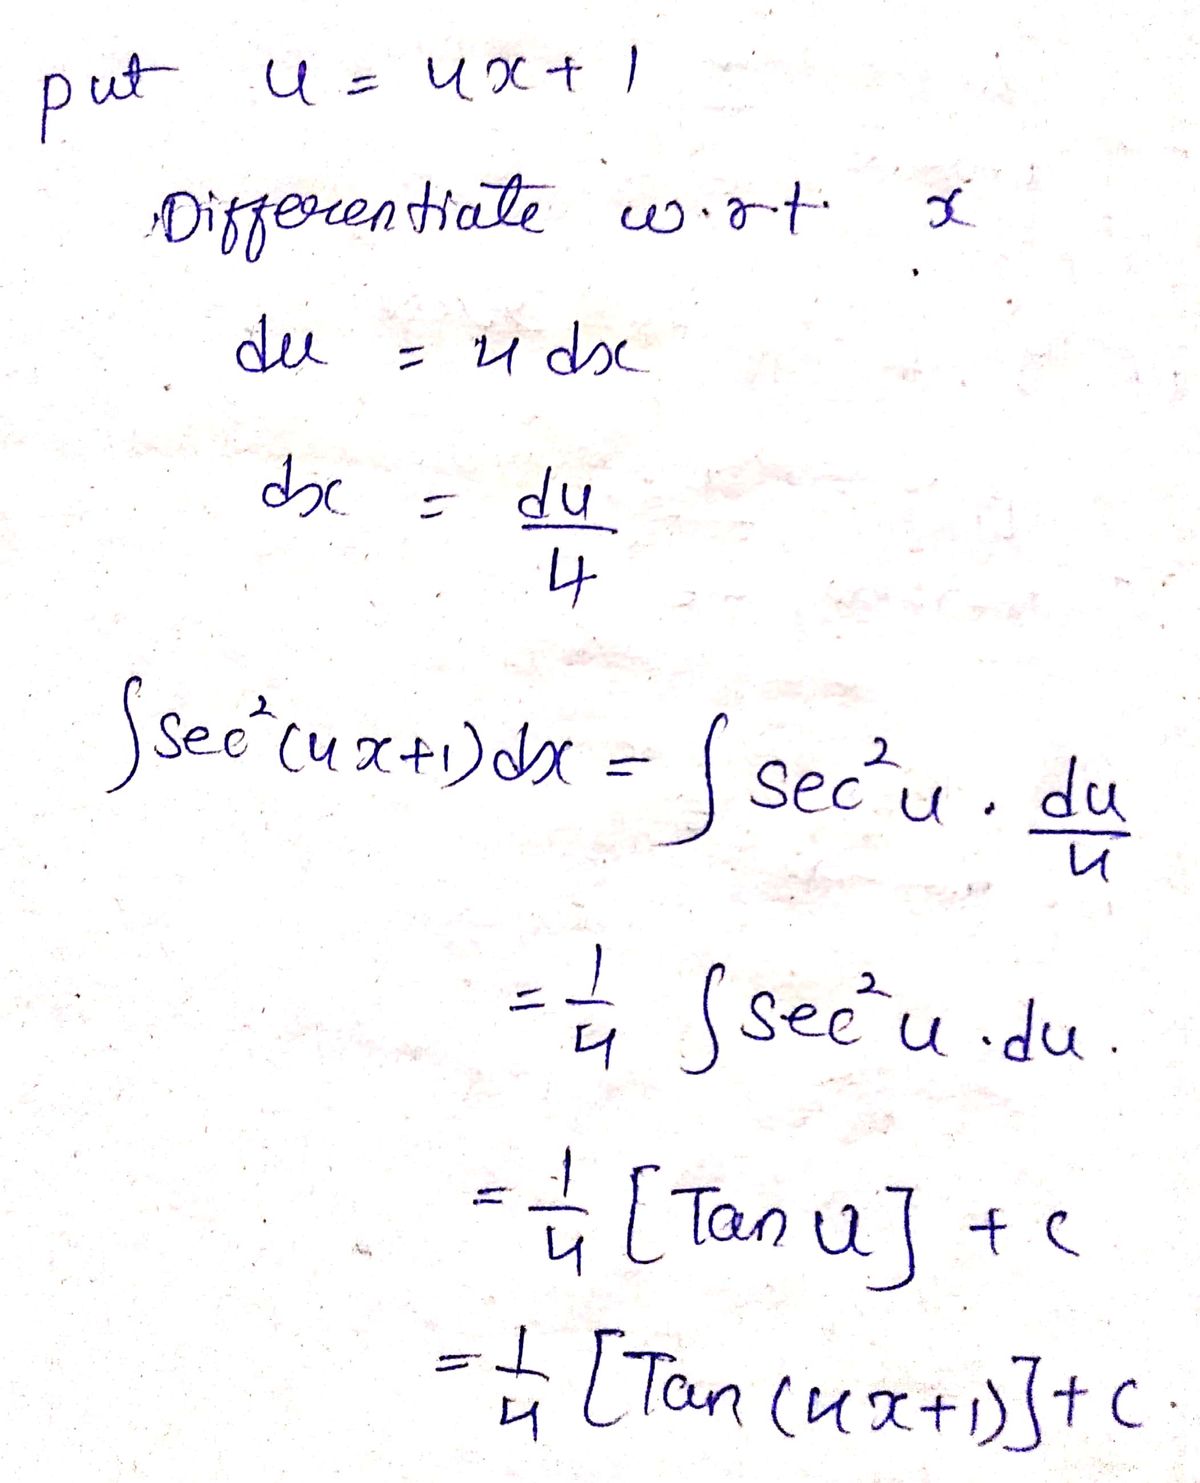 put u = 4x + 1
Differentiate w.r.t. x
du = 4 dx
dx = du/4
∫ sec²(4x+1) dx = ∫ sec² u . du/4
= 1/4 ∫ sec² u . du.
= 1/4 [Tan u] + c
= 1/4 [Tan (4x+1)] + c.